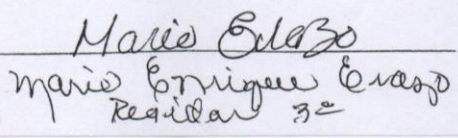 Mario Erazo
Mario Enrique Erazo
Regidor 3º